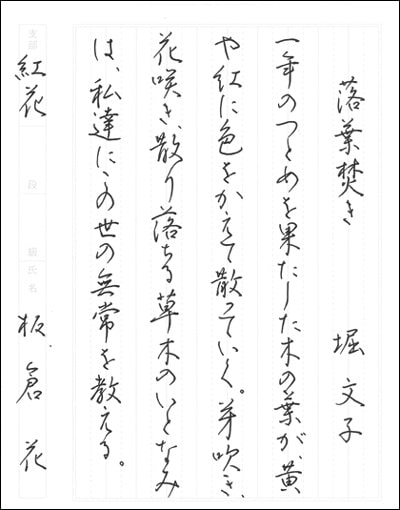 落葉焚き 堀文子
一年のつとめを果たした木の葉が、黄
や紅に色をかえて散っていく。芽吹き、
花咲き、散り落ちる草木のいとなみ
は、私達にこの世の無常を教える。
支部 紅花 段 級 氏名 板倉花